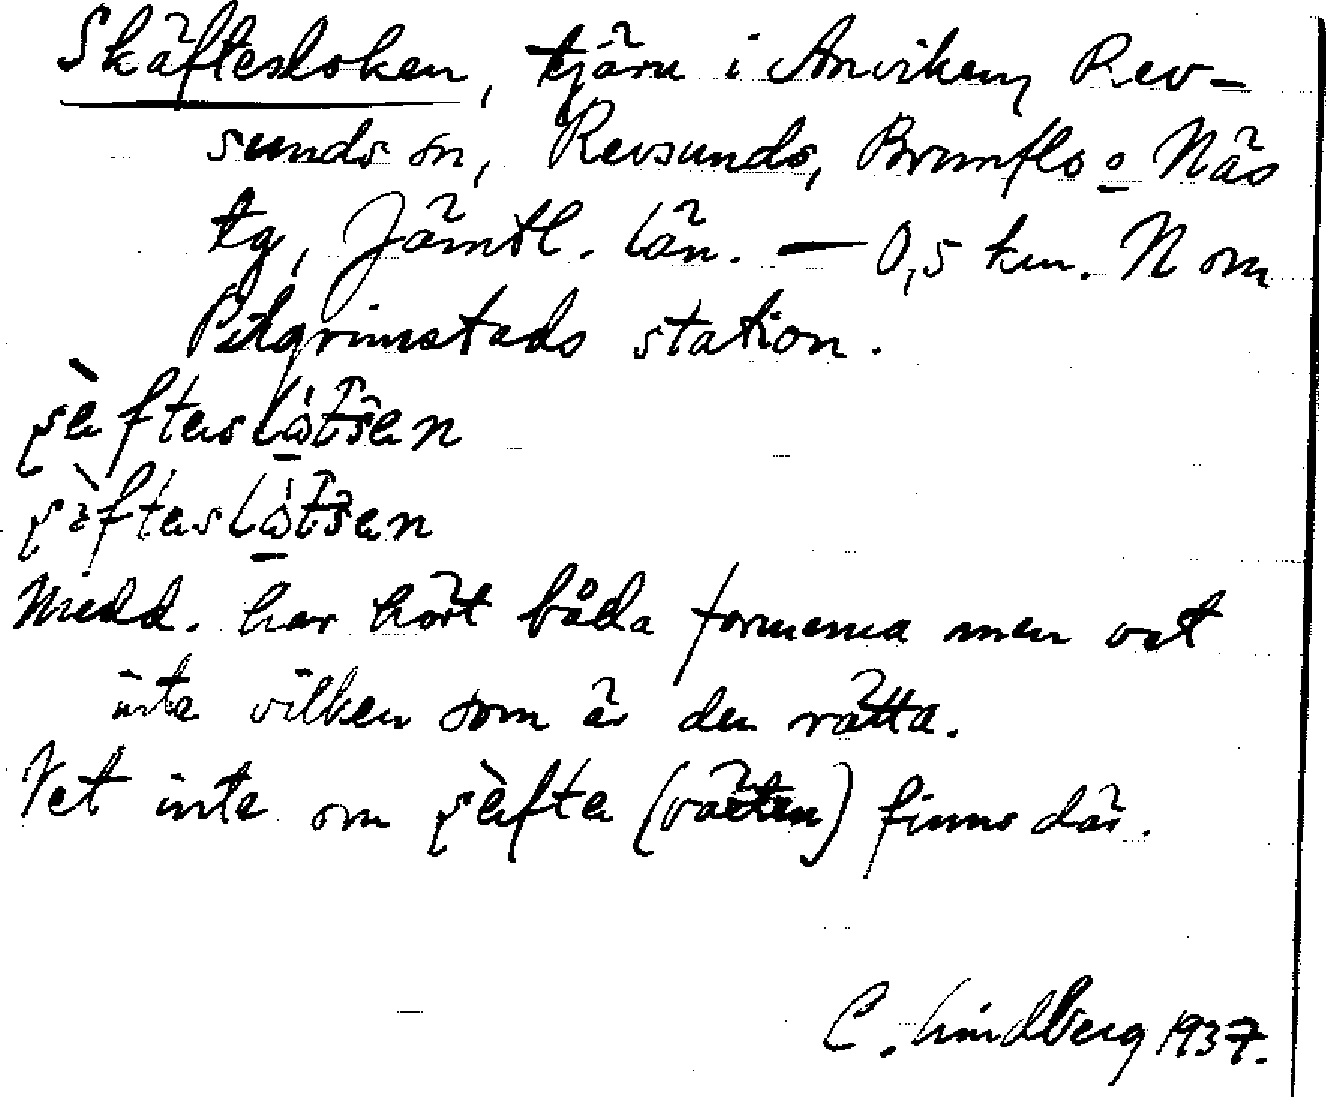 Skäftesloken, tjärn i Anviken, Rev-
sunds sn, Revsunds, Brunflo o Näs
tg, Jämtl. län. — 0,5 km. N om
Pilgrimstads station.
Medd. har hört båda formerna men vet
inte vilken som är den rätta.
Vet inte om (växten) finns där.
C. Lindberg 1937.